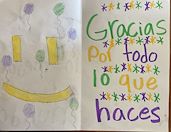 Gracias
Por todo
lo que
haces